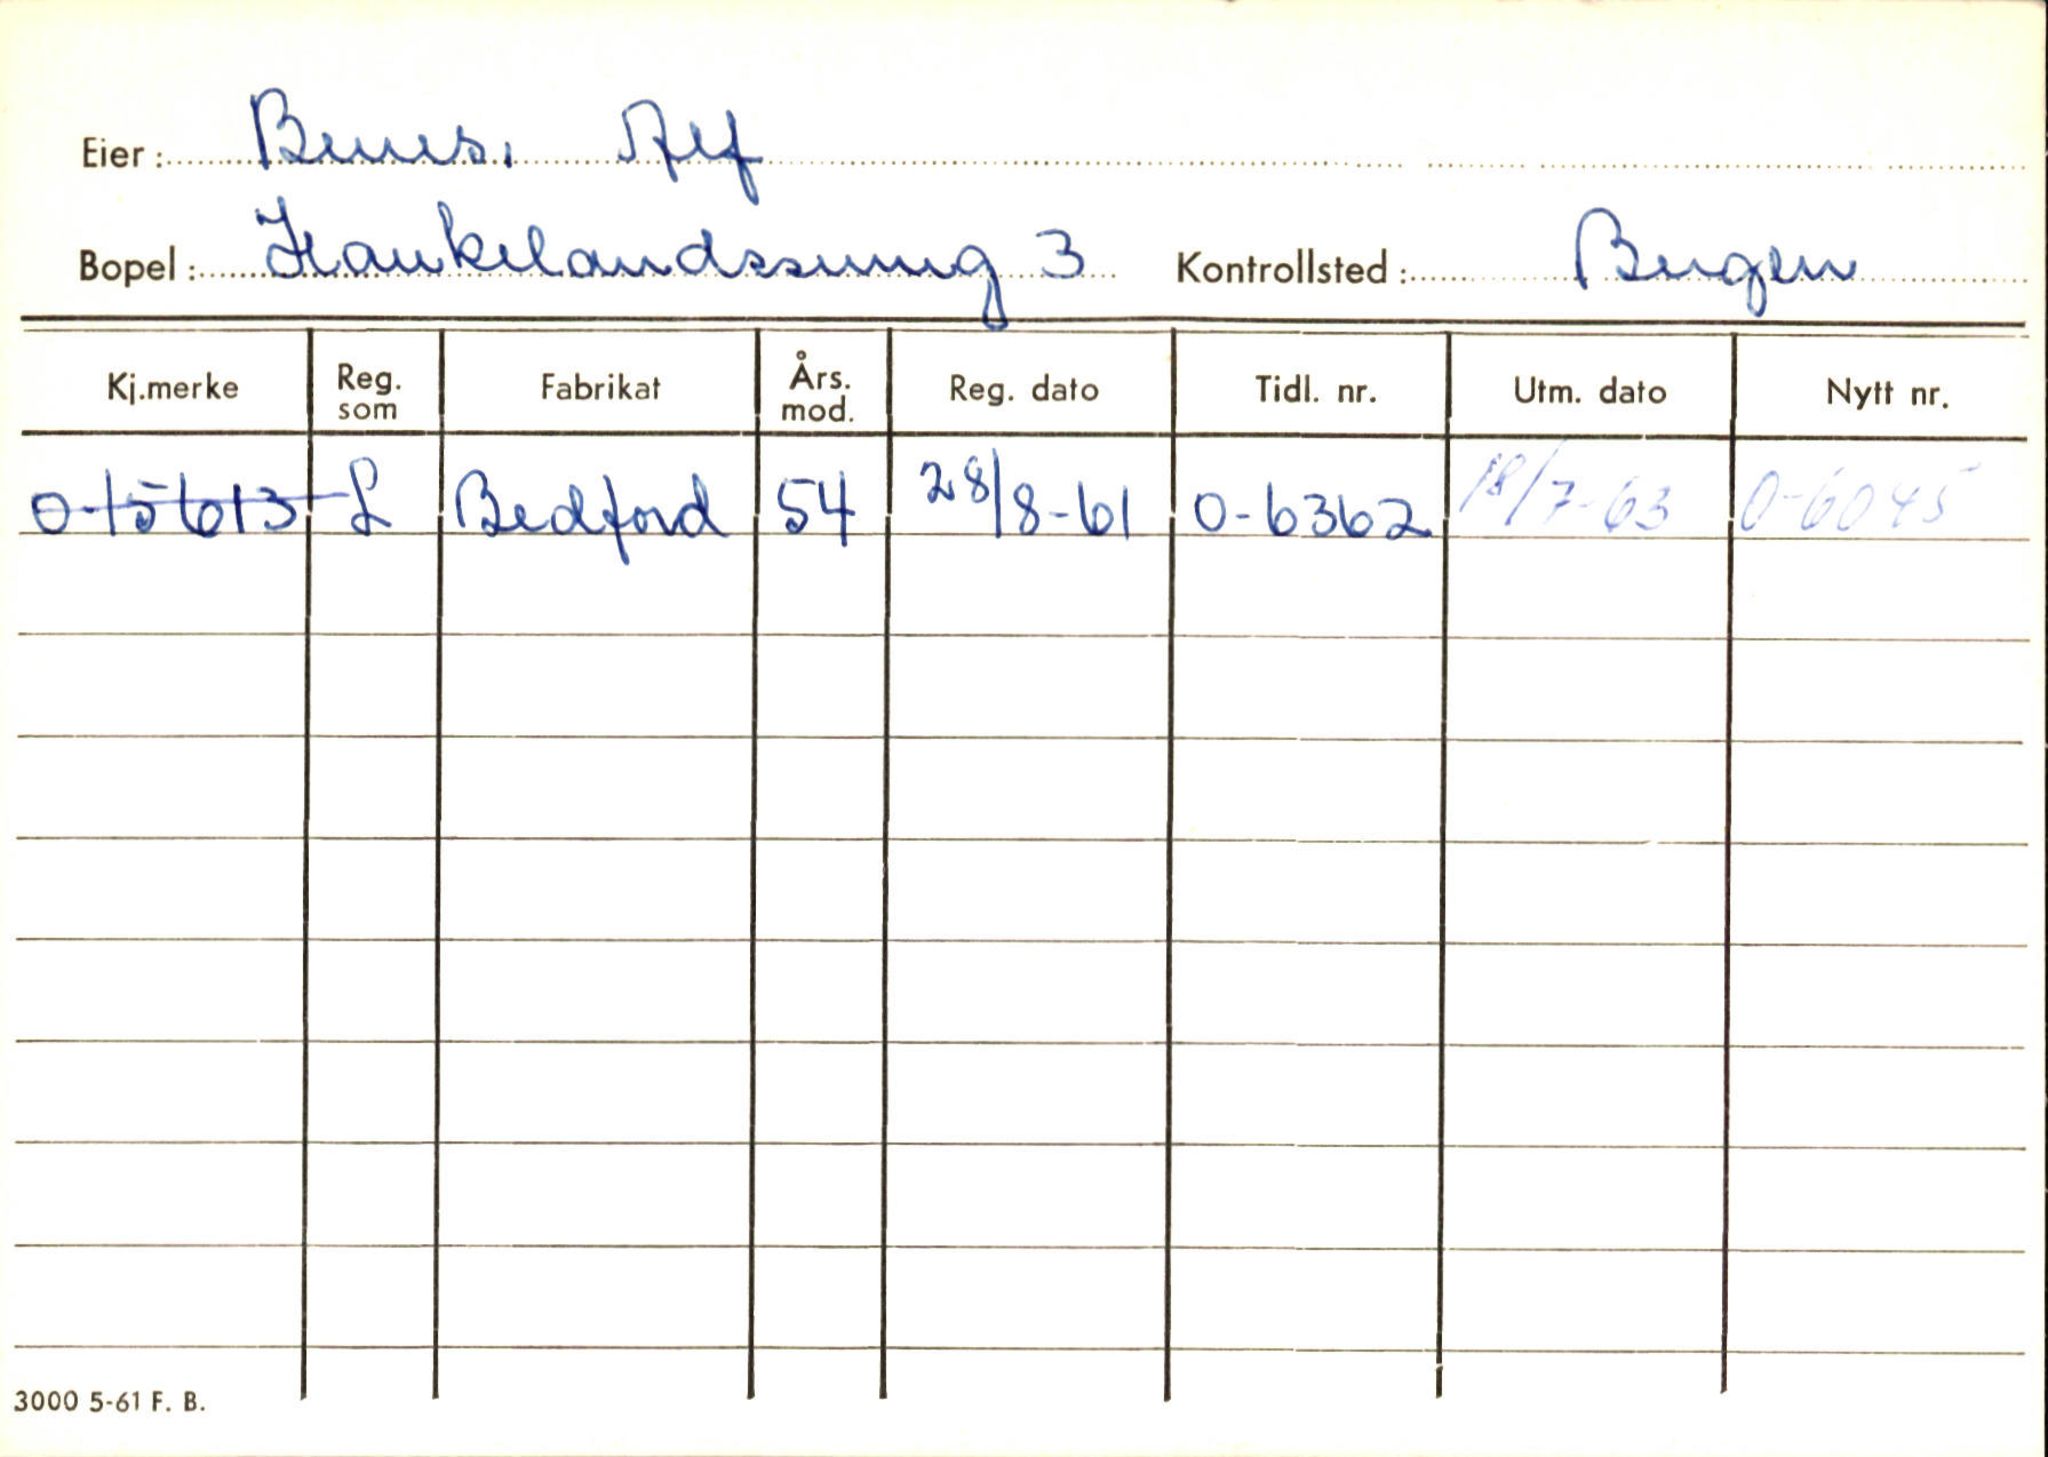 Eier: Alf
Bopel: Haukelandssving 3 Kontrollsted: Bergen
Kj.merke Reg. som Fabrikat Års. mod. Reg. dato Tidl. nr. Utm. dato Nytt nr.
O-15613 L Bedford 54 28/8-61 O-6362 18/7-63 O-6045
3000 5-61 F. B.